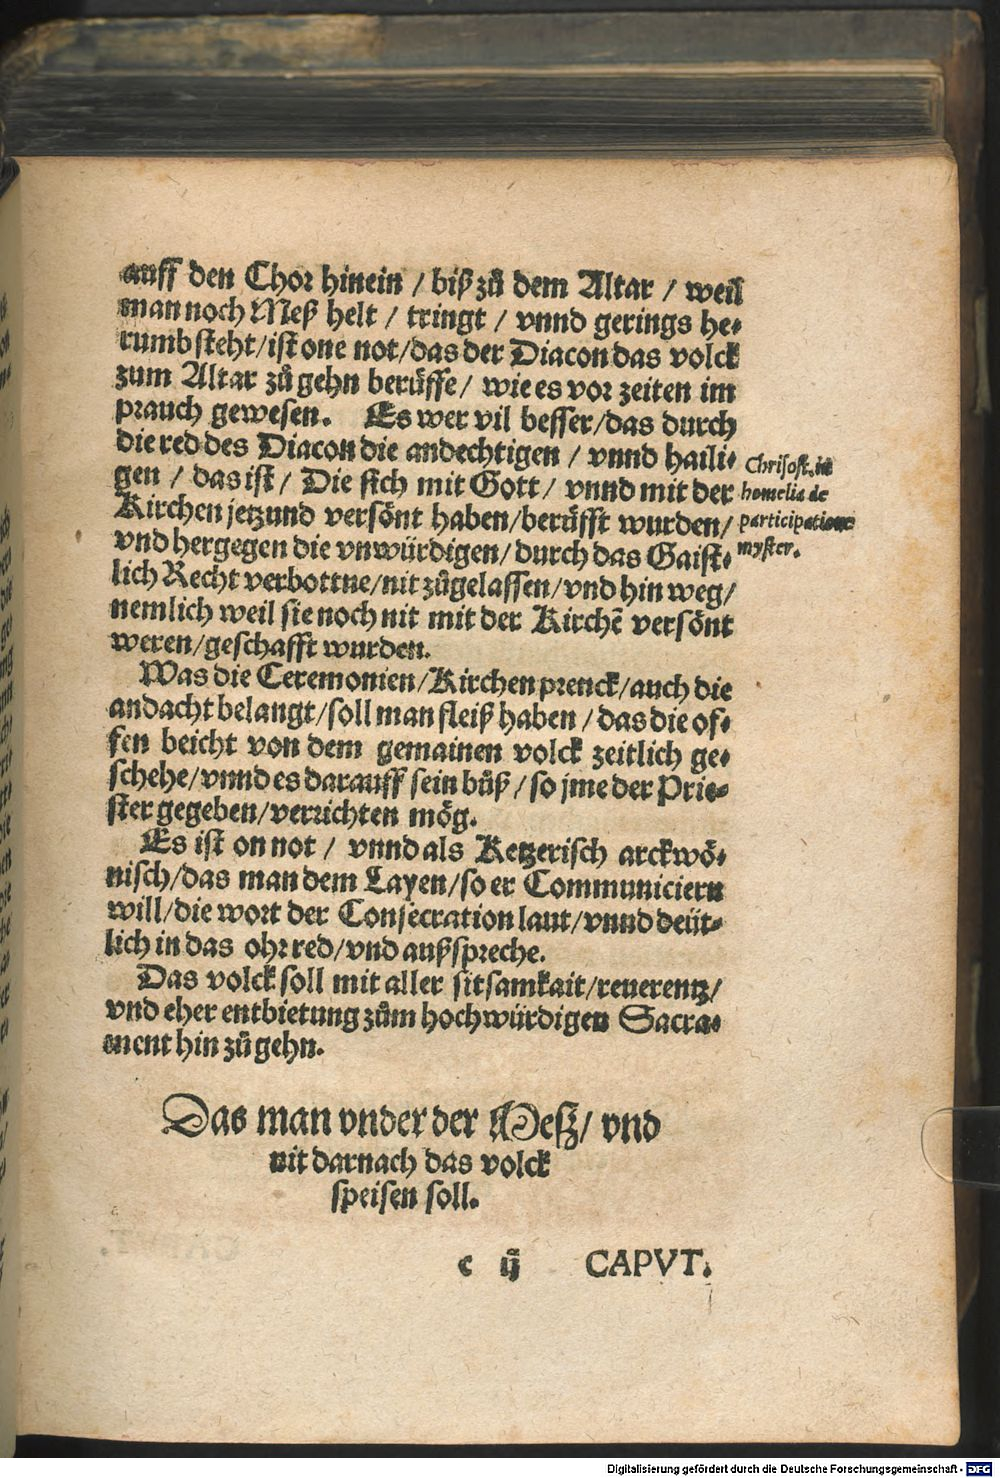 auff den Chor hinein / biß zů dem Altar / weil
man noch Meß helt / tringt / vnnd gerings he⸗
rumb steht/ist one not/das der Diacon das volck
zum Altar zů gehn berůffe/ wie es vor zeiten im
prauch gewesen. Es wer vil besser/das durch
die red des Diacon die andechtigen / vnnd haili⸗
gen / das ist / Die sich mit Gott/ vnnd mit der
Kirchen jetzund versönt haben/berůfft wurden/
vnd hergegen die vnwürdigen/durch das Gaist⸗
lich Recht verbottne/nit zůgelassen/vnd hin weg/
nemlich weil sie noch nit mit der Kirchẽ versönt
weren/geschafft wurden.
Chrisost. in
homelia de
participatione
myster.
Was die Ceremonien/Kirchen prenck/auch die
andacht belangt/soll man fleiß haben / das die of⸗
fen beicht von dem gemainen volck zeitlich ge⸗
schehe/vnnd es darauff sein bůß / so jme der Prie⸗
ster gegeben/verrichten mög.
Es ist on not / vnnd als Ketzerisch arckwö⸗
nisch/das man dem Layen/so er Communiciern
will/die wort der Consecration laut/vnnd deüt⸗
lich in das ohr red/vnd außspreche.
Das volck soll mit aller sitsamkait/reuerentz/
vnd eher entbietung zům hochwürdigen Sacra⸗
ment hin zů gehn.
Das man vnder der Meß/ vnd
nit darnach das volck
speisen soll.
c ij CAPVT.
Digitalisierung gefördert durch die Deutsche Forschungsgemeinschaft - DFG